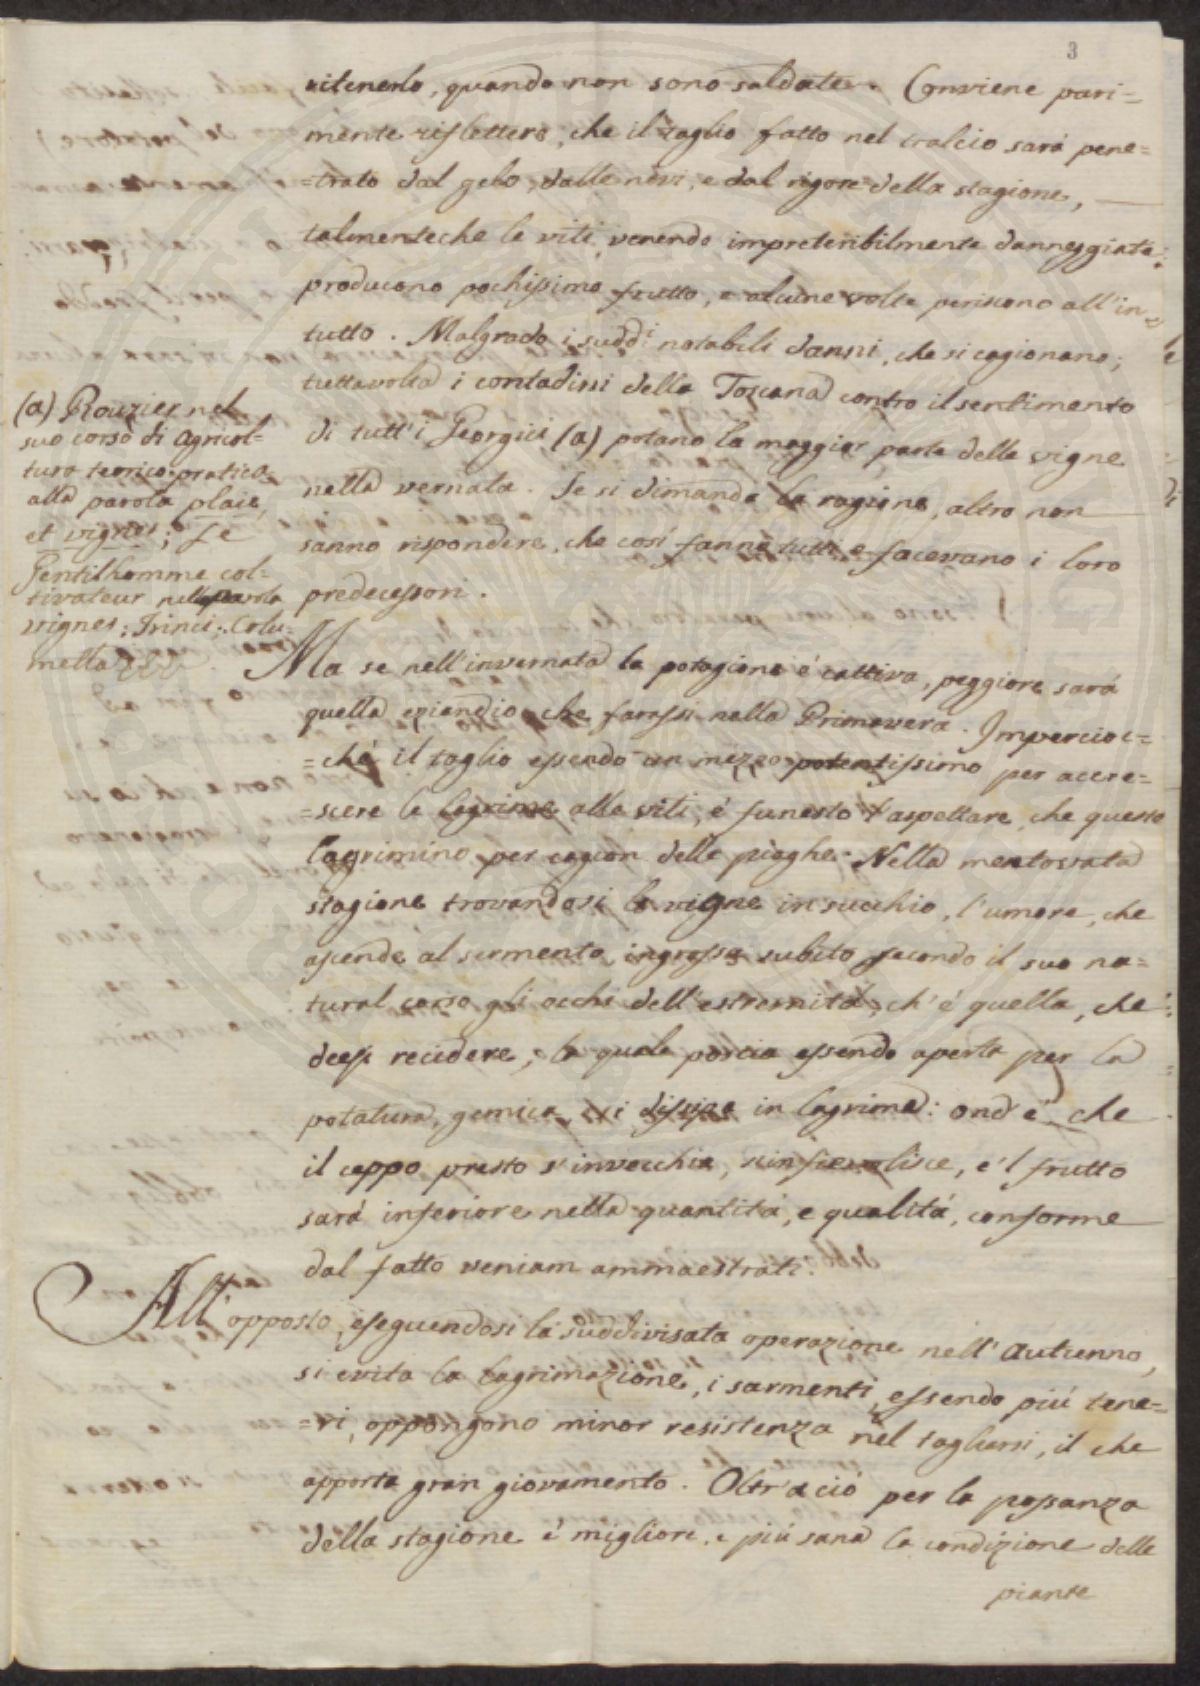 3
ritenerlo, quando non sono saldate. Conviene pari=
mente riflettere, che il taglio fatto nel tralcio sará pene=
=trato dal gelo, dalle nevi, e dal rigore della stagione,
talmenteche le viti, venendo impreteribilmente danneggiate
producono pochissimo frutto, e alcune volte periscono all'in=
tutto. Malgrado i suddi notabili danni, che si cagionano;
tuttavolta i contadini della Toscana contro il sentimento
di tutt'i Georgici (a) potano la maggior parte delle vigne
nella vernata. Se si dimanda la ragione, altro non
sanno rispondere, che cosí fanno tutti, e facevano i loro
predecessori.
(a) Rouzier nel
suo corso di agricol=
tura teorico-pratica
alla parola plaie,
et vignes; Le
Gentilhomme col=
tivateur nella parola
vignes; Trinci; Colu=
mella
Ma se nell'invernata la potagione é cattiva, peggiore sará
quella eziandio che farassi nella Primavera. Impercioc=
=ché il taglio essendo un mezzo potentissimo per accre=
=scere le lagrime alle viti, é funesto l'aspettare, che queste
lagrimino per cagion delle piaghe. Nella mentovata
stagione trovandosi le vigne in succhio, l'umore, che
ascende al sermento, ingrossa subito secondo il suo na=
tural corso gli occhi dell'estremitá, ch'é quella, che
deesi recidere; la quale poscia essendo aperta per la
potatura, gemica, e si dissipa in lagrime: ond'é, che
il ceppo presto s'invecchia, s'infievolisce, e'l frutto
sará inferiore nella quantitá, e qualitá, conforme
dal fatto veniam ammaestrati.
All'opposto, eseguendosi la suddivisata operazione nell'Autunno,
si evita la lagrimazione, i sarmenti, essendo piú tene=
=ri, oppongono minor resistenza nel tagliarsi, il che
apporta gran giovamento. Oltr'a ció per la possanza
della stagione é migliore, e piú sana la condizione delle
piante